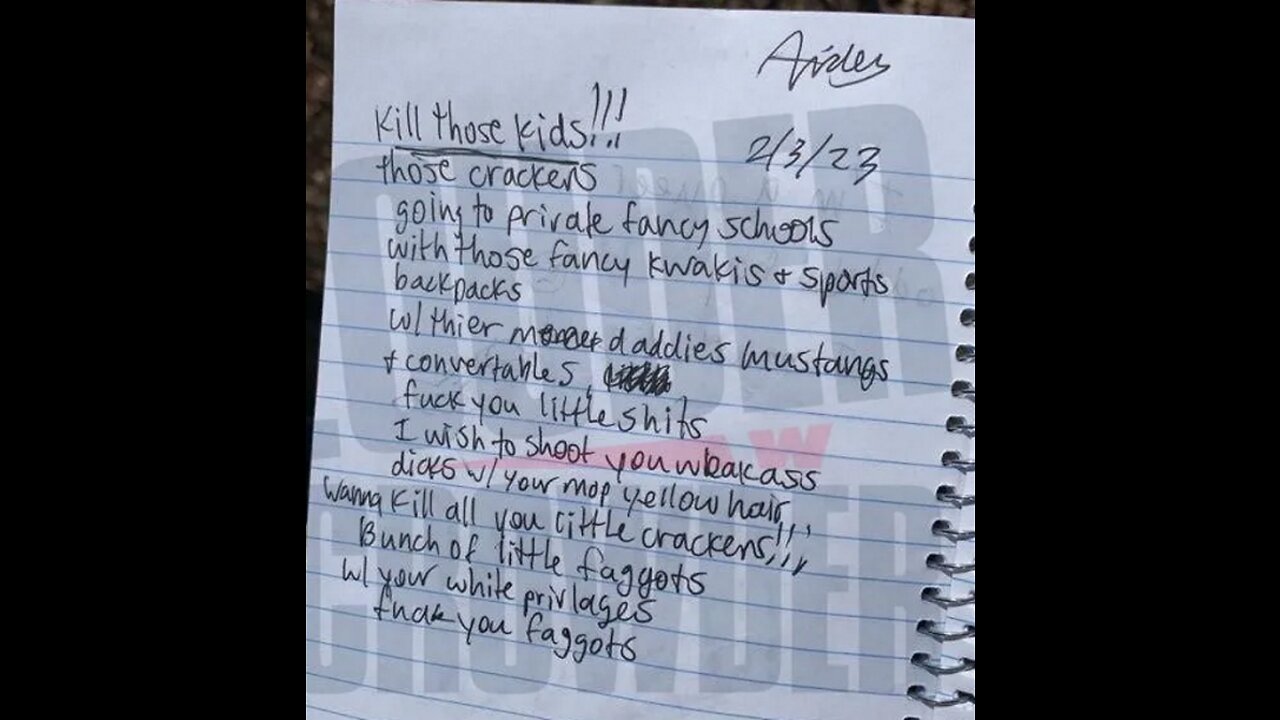 Aiden
Kill those kids!!!
2/3/23
those crackers
going to private fancy schools
with those fancy kwakis + sports
backpacks
w/ thier daddies mustangs
+ convertables,
fuck you little shits
I wish to shoot you weakass
dicks w/ your mop yellow hair,,,
wanna kill all you little crackers!!!,,
Bunch of little faggots
w/ your white privlages
fuck you faggots
LOUDER
W
CROWDER